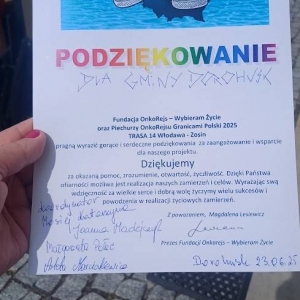 PODZIĘKOWANIE
DLA GMINY DOROHUSK
Fundacja OnkoRejs – Wybieram Życie
oraz Piechurzy OnkoRejsu Granicami Polski 2025
TRASA 14 Włodawa - Zosin
pragną wyrazić gorące i serdeczne podziękowania za zaangażowanie i wsparcie
dla naszego projektu.
Dziękujemy
za okazaną pomoc, zrozumienie, otwartość, życzliwość. Dzięki Państwa
ofiarności możliwa jest realizacja naszych zamierzeń i celów. Wyrażając swą
wdzięczność za wielkie serce i dobrą wolę życzymy wielu sukcesów i
powodzenia w realizacji życiowych zamierzeń.
Koordynator
Z poważaniem, Magdalena Lesiewicz
Joanna
Małgorzata
Prezes Fundacji Onkorejs – Wybieram Życie
Dorohusk 23.06.25